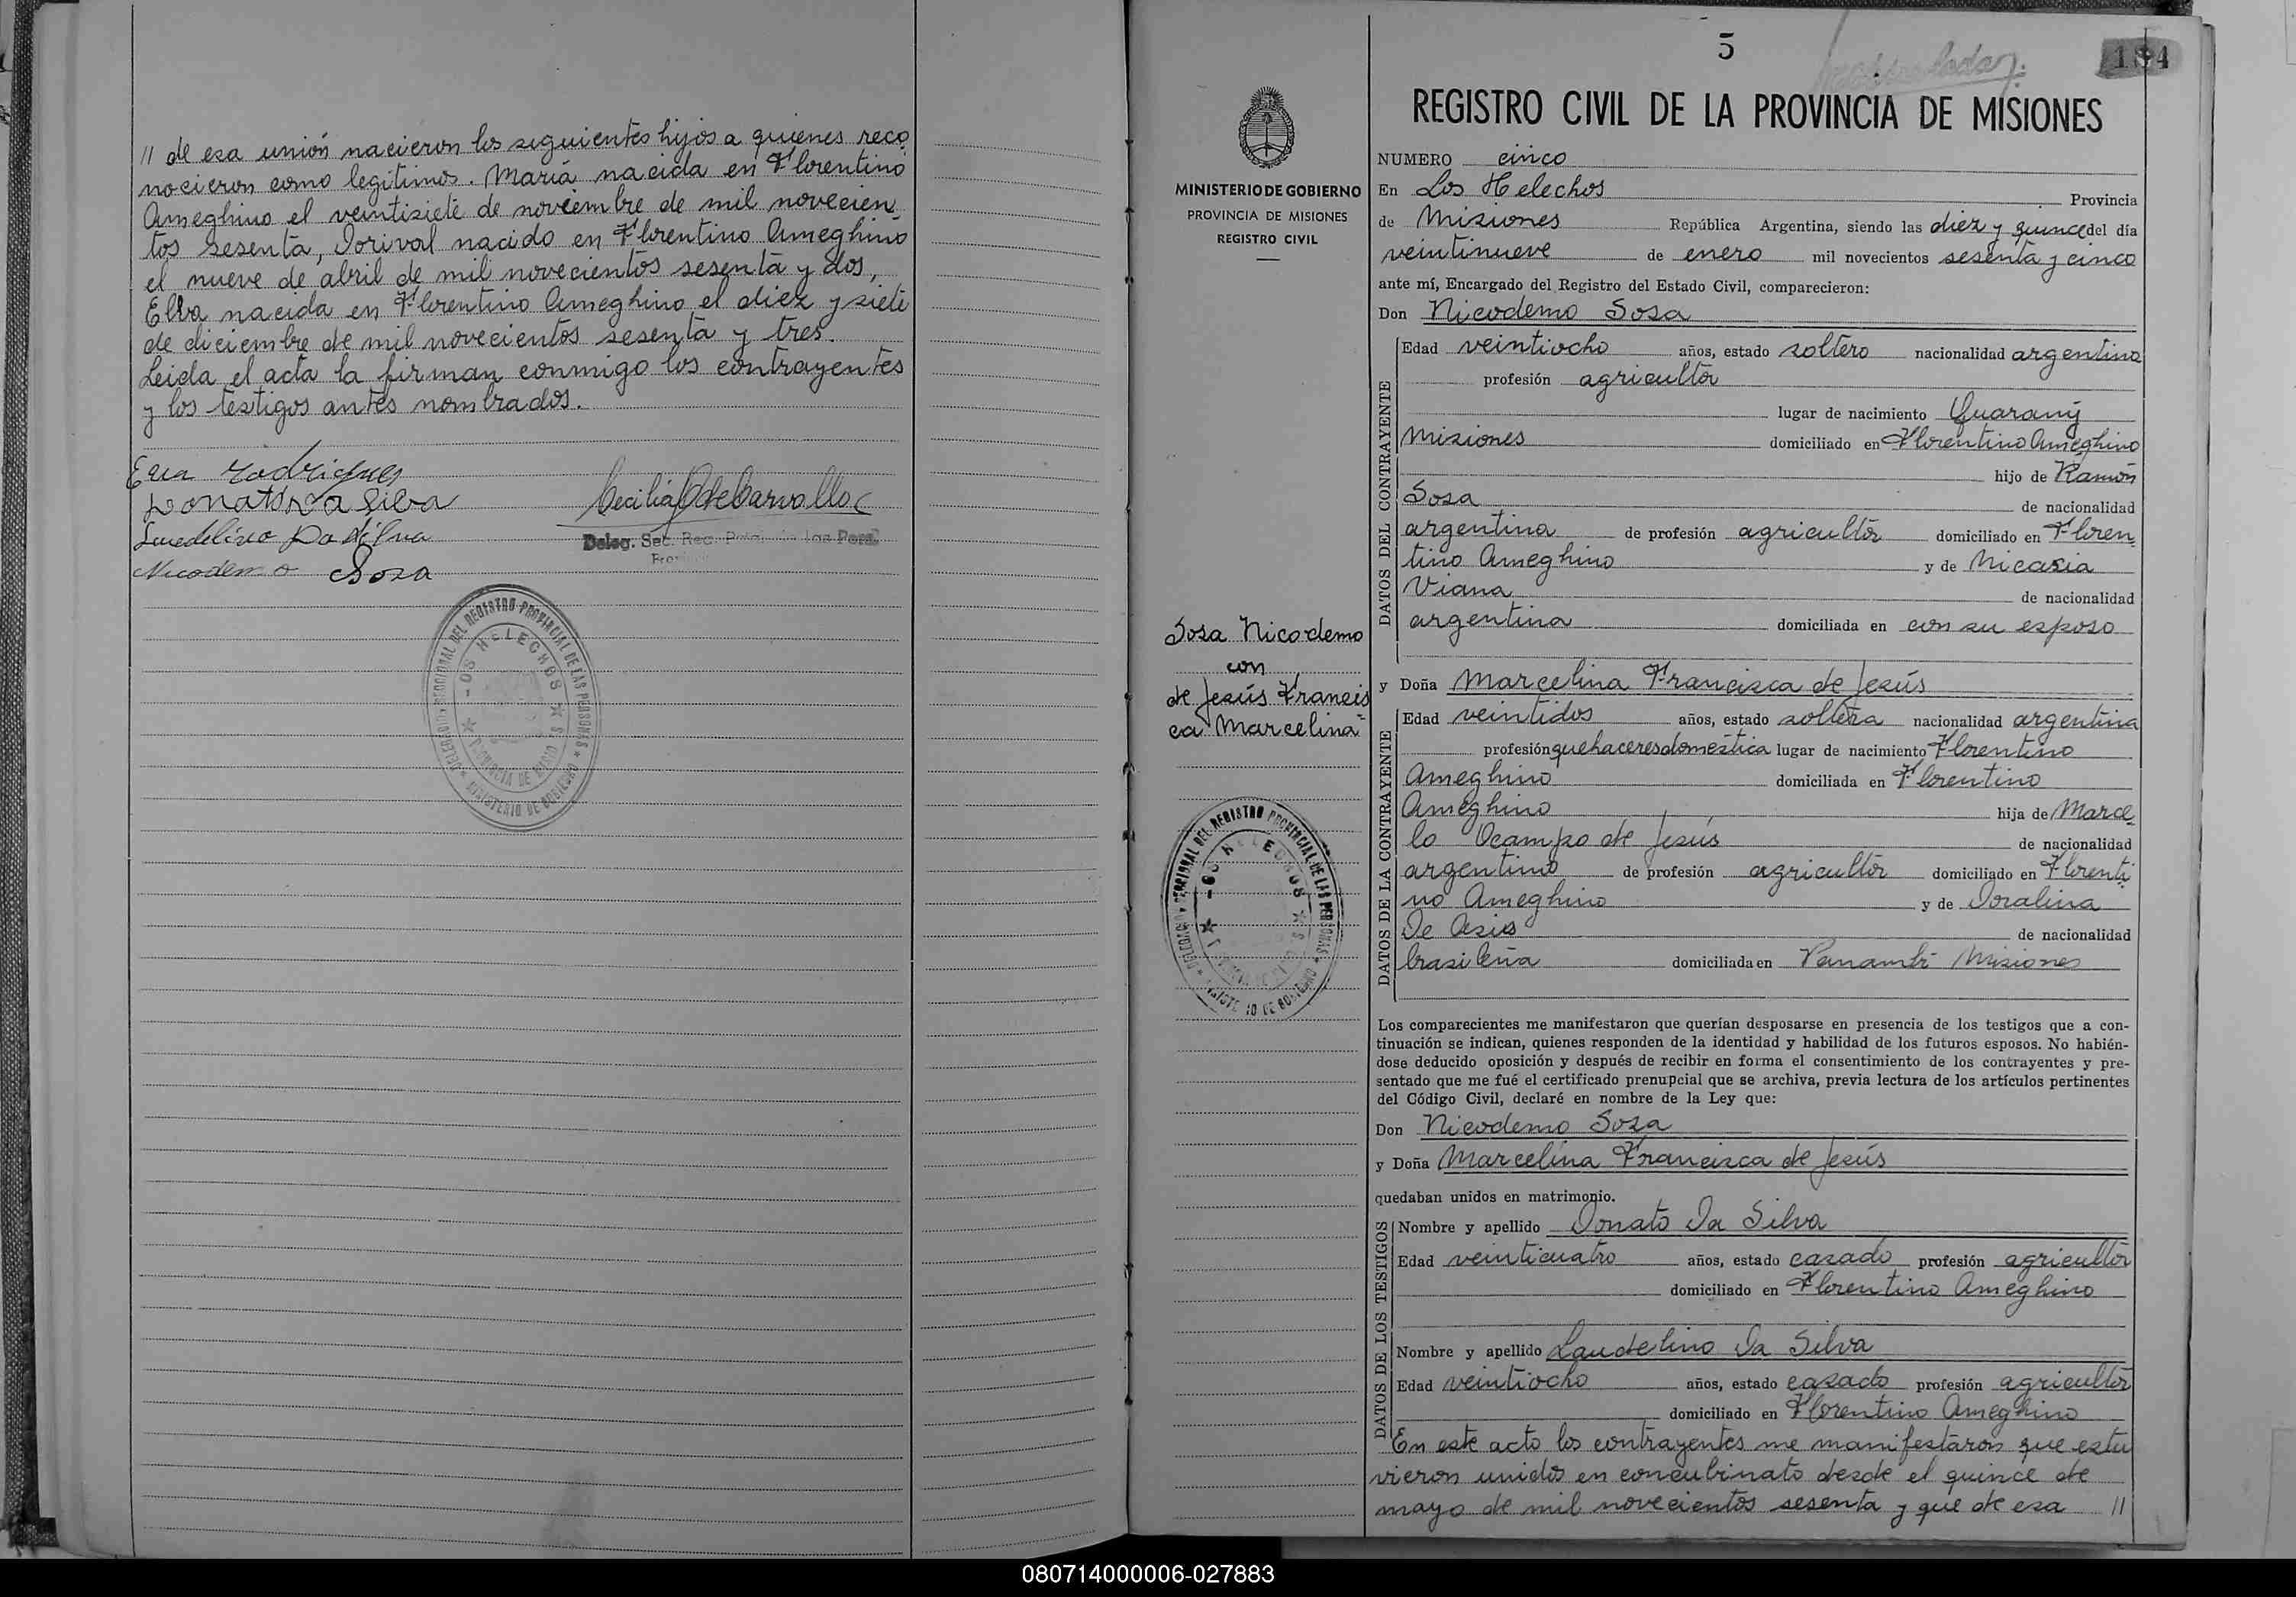 // de esa unión nacieron los siguientes hijos a quienes reco
nocieron como legítimos. María nacida en Florentino
Ameghino el veintisiete de noviembre de mil novecien
tos sesenta, Dorival nacido en Florentino Ameghino
el nueve de abril de mil novecientos sesenta y dos,
Elva nacida en Florentino Ameghino el diez y siete
de diciembre de mil novecientos sesenta y tres.
Leida el acta la firman conmigo los contrayentes
y los testigos antes nombrados.
Rodrigues
Donato Da Silva
Laudelino Da Silva
Nicodemo Sosa
Cecilia de Carvallo
Deleg. Sec. Reg. Prov. de las Pers.
DELEGADO SECCIONAL DEL REGISTRO PROVINCIAL DE LAS PERSONAS
LOS HELECHOS
PROVINCIA DE MISIONES
MINISTERIO DE GOBIERNO
5
184
REGISTRO CIVIL DE LA PROVINCIA DE MISIONES
MINISTERIO DE GOBIERNO
PROVINCIA DE MISIONES
REGISTRO CIVIL
NUMERO cinco
En Los Helechos Provincia
de Misiones República Argentina, siendo las diez y quince del día
veintinueve de enero mil novecientos sesenta y cinco
ante mí, Encargado del Registro del Estado Civil, comparecieron:
Don Nicodemo Sosa
DATOS DEL CONTRAYENTE
Edad veintiocho años, estado soltero nacionalidad argentina
profesión agricultor
lugar de nacimiento Guarany
Misiones domiciliado en Florentino Ameghino
hijo de Ramón
Sosa de nacionalidad
argentina de profesión agricultor domiciliado en Floren
tino Ameghino y de Nicasia
Viana de nacionalidad
argentina domiciliada en con su esposo
Sosa Nicodemo
con
de Jesús Francis
ca Marcelina
y Doña Marcelina Francisca de Jesús
DATOS DE LA CONTRAYENTE
Edad veintidos años, estado soltera nacionalidad argentina
profesión quehaceres domestica lugar de nacimiento Florentino
Ameghino domiciliada en Florentino
Ameghino hija de Marce
lo Ocampo de Jesús de nacionalidad
argentino de profesión agricultor domiciliado en Florenti
no Ameghino y de Doralina
De Asis de nacionalidad
brasileña domiciliada en Panambí Misiones
DELEGADO SECCIONAL DEL REGISTRO PROVINCIAL DE LAS PERSONAS
LOS HELECHOS
MINISTERIO DE GOBIERNO
Los comparecientes me manifestaron que querían desposarse en presencia de los testigos que a con-
tinuación se indican, quienes responden de la identidad y habilidad de los futuros esposos. No habién-
dose deducido oposición y después de recibir en forma el consentimiento de los contrayentes y pre-
sentado que me fué el certificado prenupcial que se archiva, previa lectura de los artículos pertinentes
del Código Civil, declaré en nombre de la Ley que:
Don Nicodemo Sosa
y Doña Marcelina Francisca de Jesús
quedaban unidos en matrimonio.
DATOS DE LOS TESTIGOS
Nombre y apellido Donato Da Silva
Edad veinticuatro años, estado casado profesión agricultor
domiciliado en Florentino Ameghino
Nombre y apellido Laudelino Da Silva
Edad veintiocho años, estado casado profesión agricultor
domiciliado en Florentino Ameghino
En este acto los contrayentes me manifestaron que estu
vieron unidos en concubinato desde el quince de
mayo de mil novecientos sesenta y que de esa //
080714000006-027883